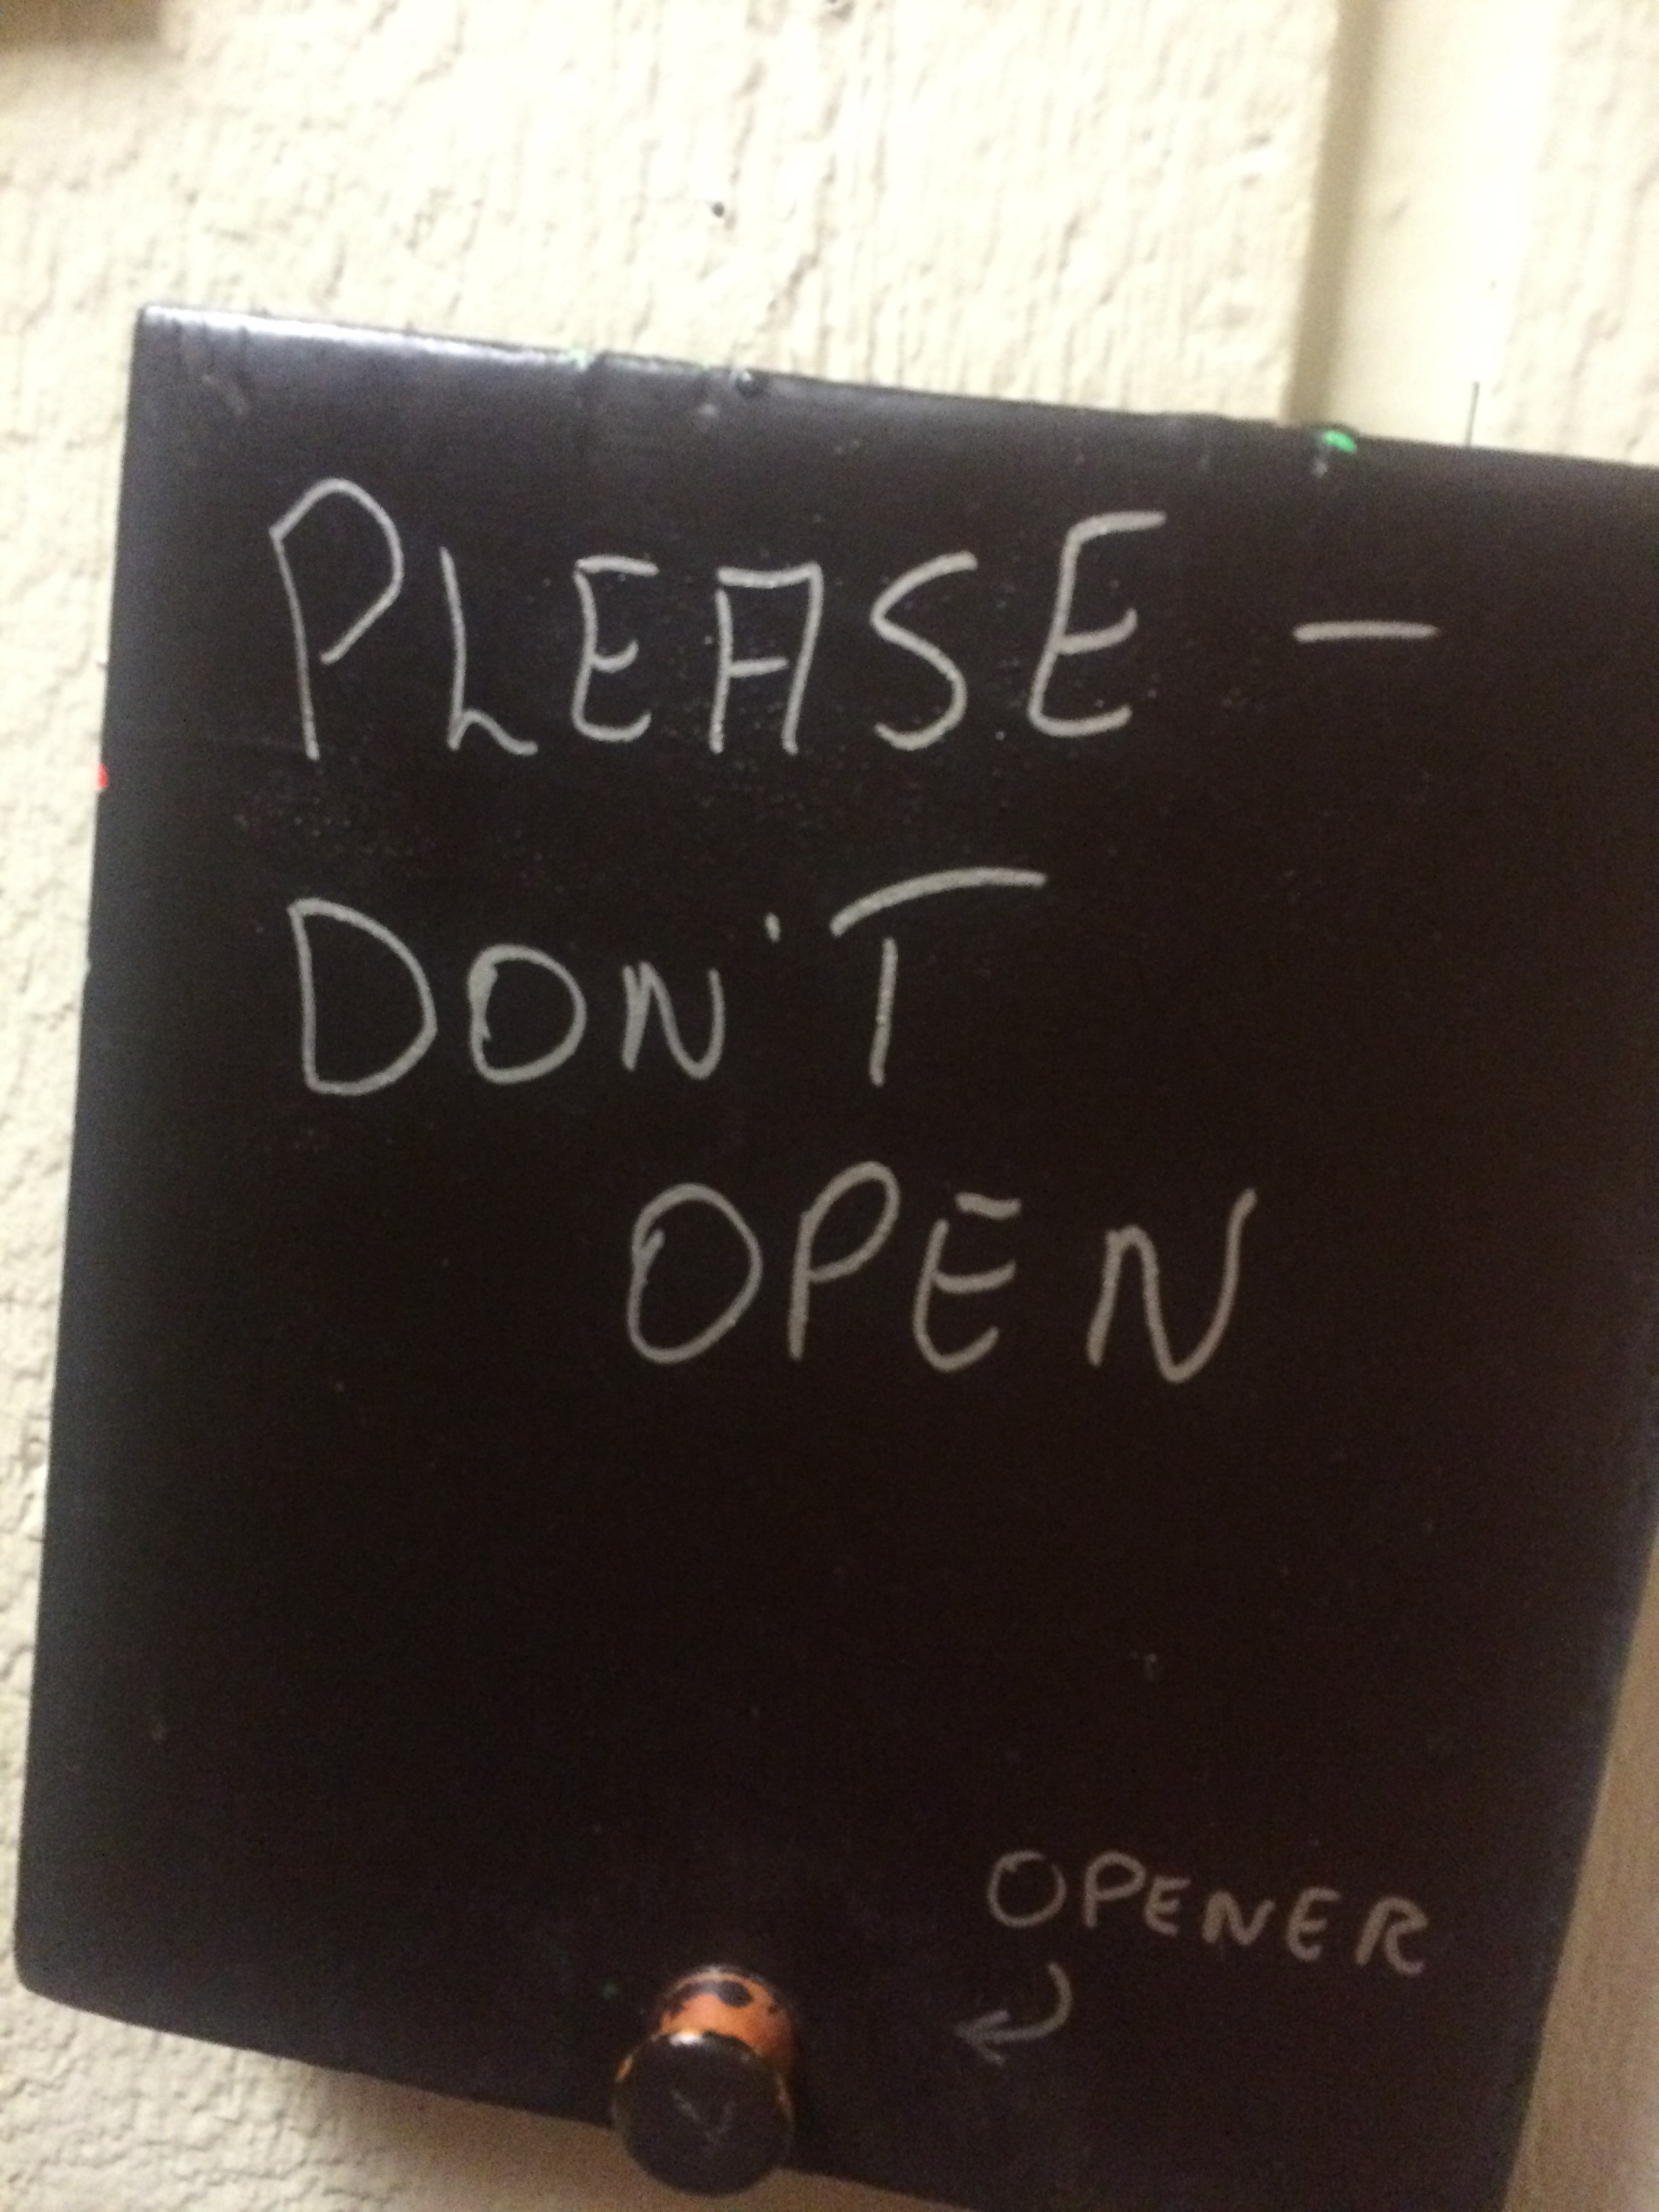 PLEASE –
DON'T
OPEN
OPENER